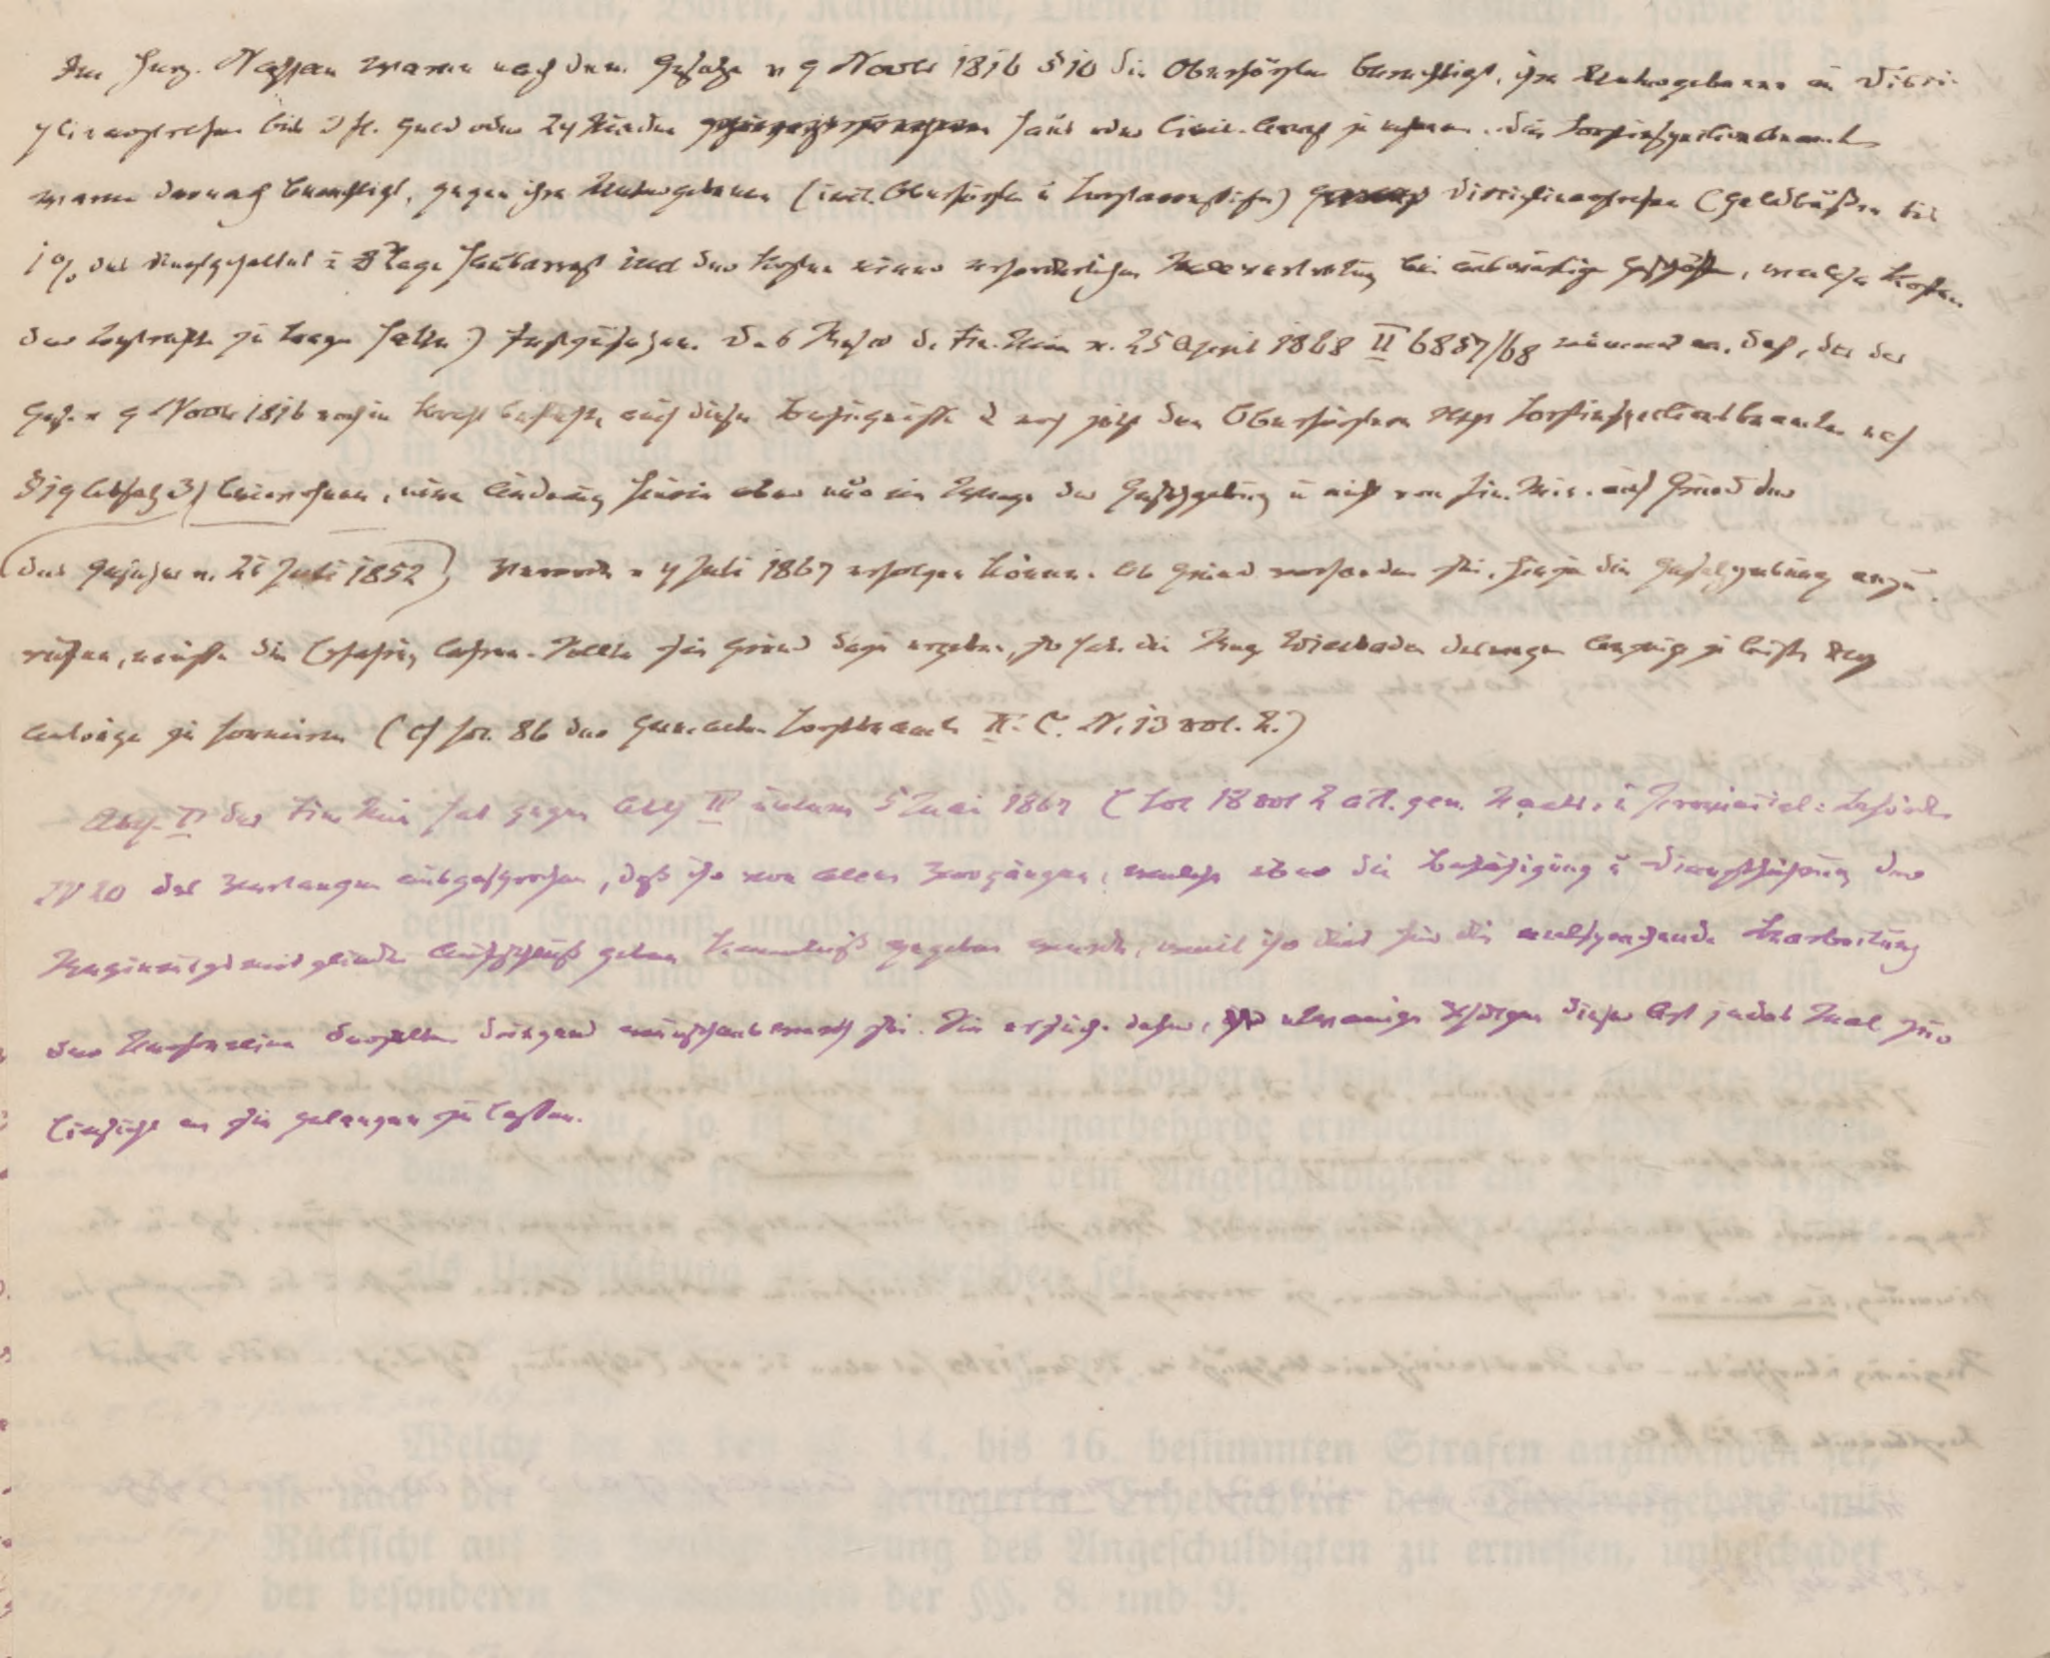 Im Herz. Nassau waren nach dem Gesetze v 9 Novbr 1816 §10 die Oberförster berechtigt, ihre Untergebenen in Disci-
plinarstrafen bis 2 fl. Geld oder 24 Stunden Haus oder Civil-Arrest zu nehmen. Die Forstinspectionsbeamten
waren darnach berechtigt, gegen ihre Untergebenen (incl. Oberförster u Forstaccessisten) Disciplinarstrafen (Geldbußen bis
1% des Dienstgehaltes u 8 Tage Hausarrest und den Kosten einer erforderlichen Stellvertretung bei auswärtigen Geschäften, welche Kosten
der Bestrafte zu tragen hatte) festzusetzen. Das Rescr d. Fin. Min v. 25 April 1868 II 6857/68 nimmt an, daß, da das
Ges. v 9 Novbr 1816 noch in Kraft bestehe, auch diese Befugnisse d noch jetzt den Oberförstern resp Forstinspectionsbeamten nach
§19 Absatz 3) beiwohnen, eine Änderung hierin aber nur im Wege der Gesetzgebung u nicht vom Fin. Min. auf Grund der
(des Gesetzes v. 21 Juli 1852) Verordn v 4 Juli 1867 erfolgen könne. Ob Grund vorhanden sei, hierzu die Gesetzgebung anzu-
rufen, müsse die Erfahrung lehren. Sollte sich Grund dazu ergeben, so habe die Reg Wiesbaden deswegen
Anträge zu formiren (cf fol. 86 der Gen. acten Forstbeamte II. C. N. 13 vol. 2.)
Abth. II des Fin Min hat gegen Abth IV unterm 5 Mai 1867 (fol 18 vol 2 act. gen. u Provincial-Behörde
IV 20 das Verlangen ausgesprochen, daß ihr von allen Vorgängen, welche über die Befähigung u Dienstführung der
Regierungsmitglieder Aufschluß geben Kenntniß gegeben werde, weil ihr dies für die entsprechende Bearbeitung
der Personalien derselben dringend wünschenswerth sei. Sie ersuche daher, etwaige Sachen dieser Art jedes Mal zur
Einsicht an sie gelangen zu lassen.